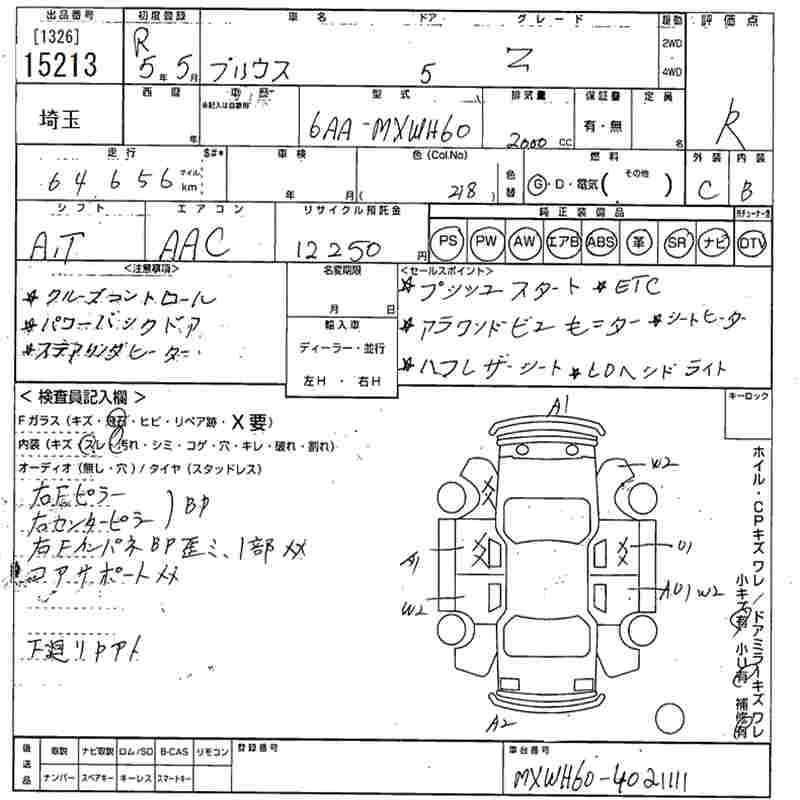 出品番号 初度登録 車名 ドア グレード 駆動 評価点
[1326]
15213
R 5年 5月 プリウス 5 Z 2WD 4WD
埼玉
西暦 年
車歴
未記入は自家用
型式 排気量 保証書 定員
6AA-MXWH60 2000 CC 有・無 名
R
走行 $#* 車検 色(Col.No) 燃料 外装 内装
64656 マイル km 年 月 ( 218 ) 色替 Ⓖ・D・電気( その他 ) C B
シフト エアコン リサイクル預託金 純正装備品
A.T AAC 12250円 PS PW AW エアB ABS 革 SR ナビ DTV
<注意事項> 名変期限 <セールスポイント>
☆クルーズコントロール 月 日 ☆プッシュスタート ☆ETC
☆パワーバックドア 輸入車 ☆アラウンドビューモニター ☆シートヒーター
☆ステアリングヒーター ディーラー・並行
左H・右H ☆ハーフレザーシート ☆LDヘッドライト
キーロック
<検査員記入欄>
Fガラス(キズ・飛石・ヒビ・リペア跡・X要)
内装(キズ・スレ・汚れ・シミ・コゲ・穴・キレ・破れ・割れ)
オーディオ(無し・穴)/タイヤ(スタッドレス)
右Fピラー
右センターピラー ) BP
右Fインパネ BP歪ミ、1部XX
コアサポートXX
下廻リヤアト
A1
W2
A1 U1
W2 AU1 W2
A2
ホイル・CPキズワレ/ドアミラーキズワレ
小キズ有 小U有 補修有
後送品 取説 ナビ取説 ロム/SD B-CAS リモコン 登録番号 車台番号
ナンバー スペアキー キーレス スマートキー MXWH60-4021111